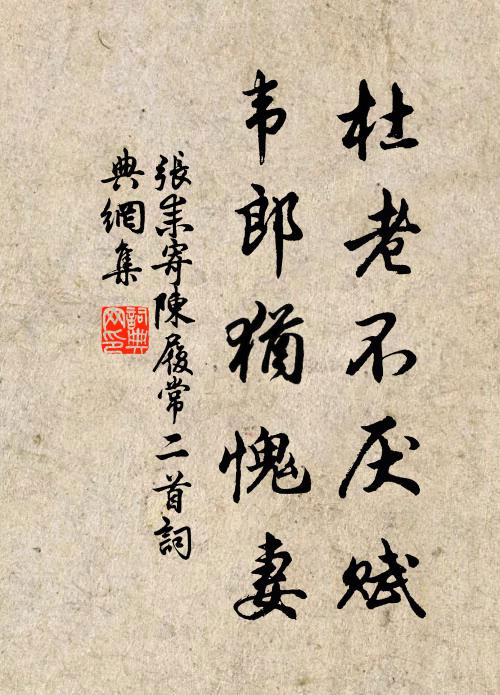 杜老不厌赋
韦郎犹愧妻
張耒寄陳履常二首詞
典網集
詞典
网印